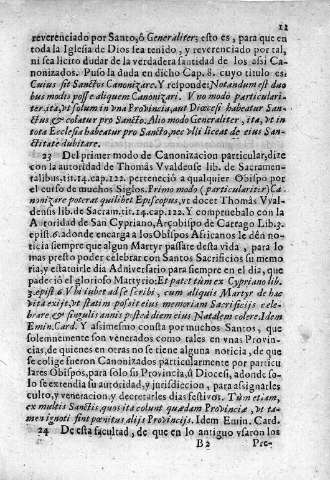 12
reverenciado por Santo, ô Generaliter; esto es, para que en
toda la Iglesia de Dios sea tenido, y reverenciado por tal,
ni sea licito dudar de la verdadera santidad de los assi Ca
nonizados. Puso la duda en dicho Cap. 8. cuyo titulo es:
Cuius sit Sanctos Canonizare. Y responde: Notandum est duo
bus modis posse aliquem Canonizari. Vno modo particulari-
ter, ita, vt solum in vna Provincia, aut Diœcesi habeatur San-
ctus, & colatur pro Sancto. Alio modo Generaliter, ita, vt in
tota Ecclesia habeatur pro Sancto, nec vlli liceat de eius San-
ctitate dubitare.
23 Del primer modo de Canonizacion particular, dize
con la autoridad de Thomàs Vvaldensis lib. de Sacramen-
talibus. tit. 14. cap. 122. perteneciò a qualquier Obispo por
el curso de muchos Siglos. Primo modo (particulariter) Ca-
nonizare poterat quilibet Episcopus, vt docet Thomas Vval-
densis lib. de Sacram. tit. 14. cap. 122. Y compruebalo con la
Autoridad de San Cypriano, Arçobispo de Cartago Lib. 3.
epist. 6. adonde encarga a los Obispos Africanos le dèn no-
ticia siempre que algun Martyr passare desta vida, para lo
mas presto poder celebrar con Santos Sacrificios su memo-
ria, y estatuirle dia Adniversario para siempre en el dia, que
padeciò el glorioso Martyrio: Et patet tùm ex Cypriano lib.
3. epist. 6. Vbi iubet ad se scribi, cum aliquis Martyr de hac
vita exijt, vt statim possit eius memoriam Sacrificijs cele-
brare, & singulis annis posteà diem eius Natalem colere. Idem
Emin. Card. Y assimesmo consta por muchos Santos, que
solemnemente son venerados como tales en vnas Provin-
cias, de quienes en otras no se tiene alguna noticia, de que
se colige fueron Canonizados particularmente por particu
lares Obispos, para solo su Provincia, ù Diocesi, adonde so-
lo se extendia su autoridad, y jurisdiccion, para assignarles
culto, y veneracion, y decretarles dias festivos. Tùm etiam,
ex multis Sanctis, quos ita colunt quædam Provinciæ, vt ta-
men ignoti sint pœnitus alijs Provincijs. Idem Emin. Card.
24 De esta facultad, de que en lo antiguo vsaron los
B 2 Pre-